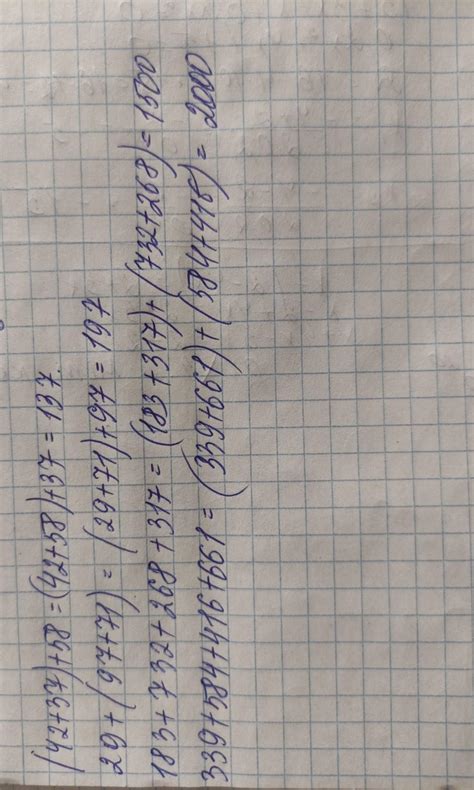 (42+37)+58=(42+58)+37=137.
29+(97+71)=(29+71)+97=197
183+732+268+317=(183+317)+(732+268)=1500
339+584+416+661=(339+661)+(584+416)=2000